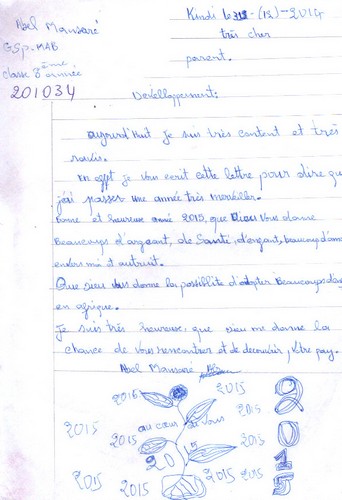 Abel Mansaré
GSP-MAB
classe 3ème année
201034
Kindi le -(12)-2014
très cher
parent.
Devellopement:
aujourd'huit je suis très content et très
ravis.
En effet je vous ecrit cette lettre pour dire que
j'ai passer une année très
Bonne et heureuse anné 2015, que Dieu Vous donne
Beaucoups d'argeant, de Santé, d'argant, beaucoup d'amo
mé et autruit.
Que Dieu vous donne la possiblite d'adopter Beaucoups d'
en afrique.
Je suis très heureuse, que dieu me donne la
chance de vous rencontrer et de decouvrir, Votre pay.
Abel Mansaré
2015 2015 2
2015 au cœur de vous 2015 0
2015 2015 2015 1
2015 2015 2015 2015 5